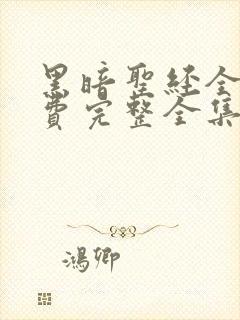 黑暗聖經全
費完整全集
鴻卿